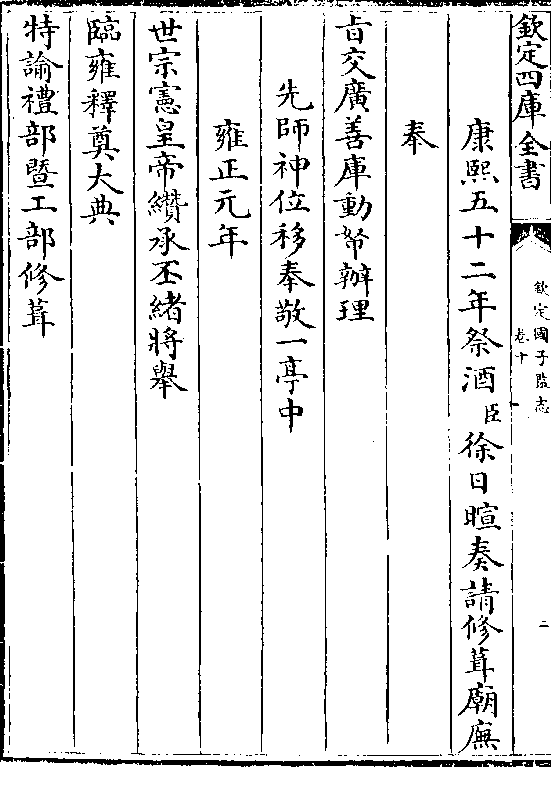 欽定四庫全書
欽定國子監志
卷十
二
康熙五十二年祭酒臣徐日暄奏請修葺廟廡
奉
旨交廣善庫動帑辦理
先師神位移奉敬一亭中
雍正元年
世宗憲皇帝纘承丕緒將舉
臨雍釋奠大典
特諭禮部暨工部修葺